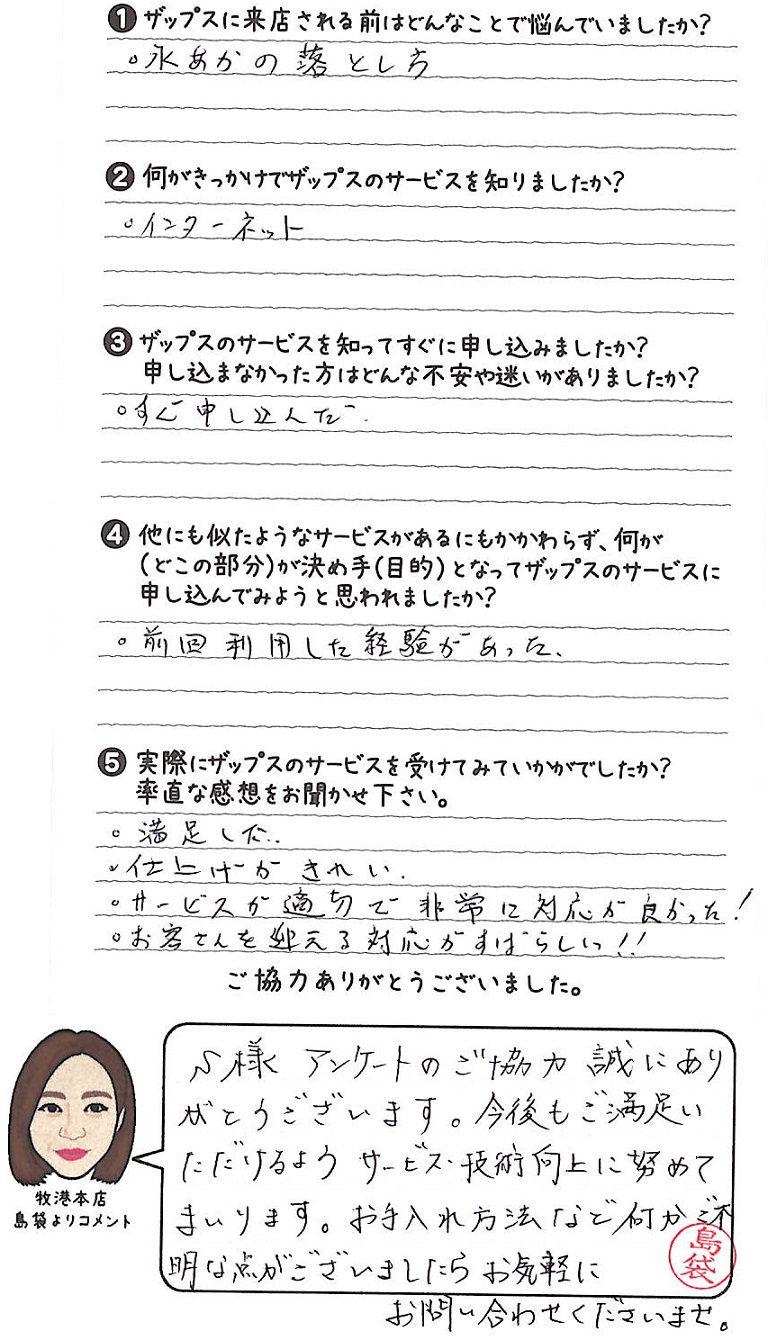 ❶ ザップスに来店される前はどんなことで悩んでいましたか?
。水あかの落とし方
❷ 何がきっかけでザップスのサービスを知りましたか?
。インターネット
❸ ザップスのサービスを知ってすぐに申し込みましたか?
申し込まなかった方はどんな不安や迷いがありましたか?
。すぐ申し込んだ.
❹ 他にも似たようなサービスがあるにもかかわらず、何が
(どこの部分)が決め手(目的)となってザップスのサービスに
申し込んでみようと思われましたか?
。前回利用した経験があった、
❺ 実際にザップスのサービスを受けてみていかがでしたか?
率直な感想をお聞かせ下さい。
。満足した..
。仕上げがきれい.
。サービスが適切で非常に対応が良かった!
。お客さんを迎える対応がすばらしい!!
ご協力ありがとうございました。
S様 アンケートのご協力 誠にあり
がとうございます。今後もご満足い
ただけるよう サービス・技術向上に努めて
まいります。お手入れ方法など何かご不
明な点がございましたらお気軽に
お問い合わせくださいませ。
牧港本店
島袋よりコメント
島袋